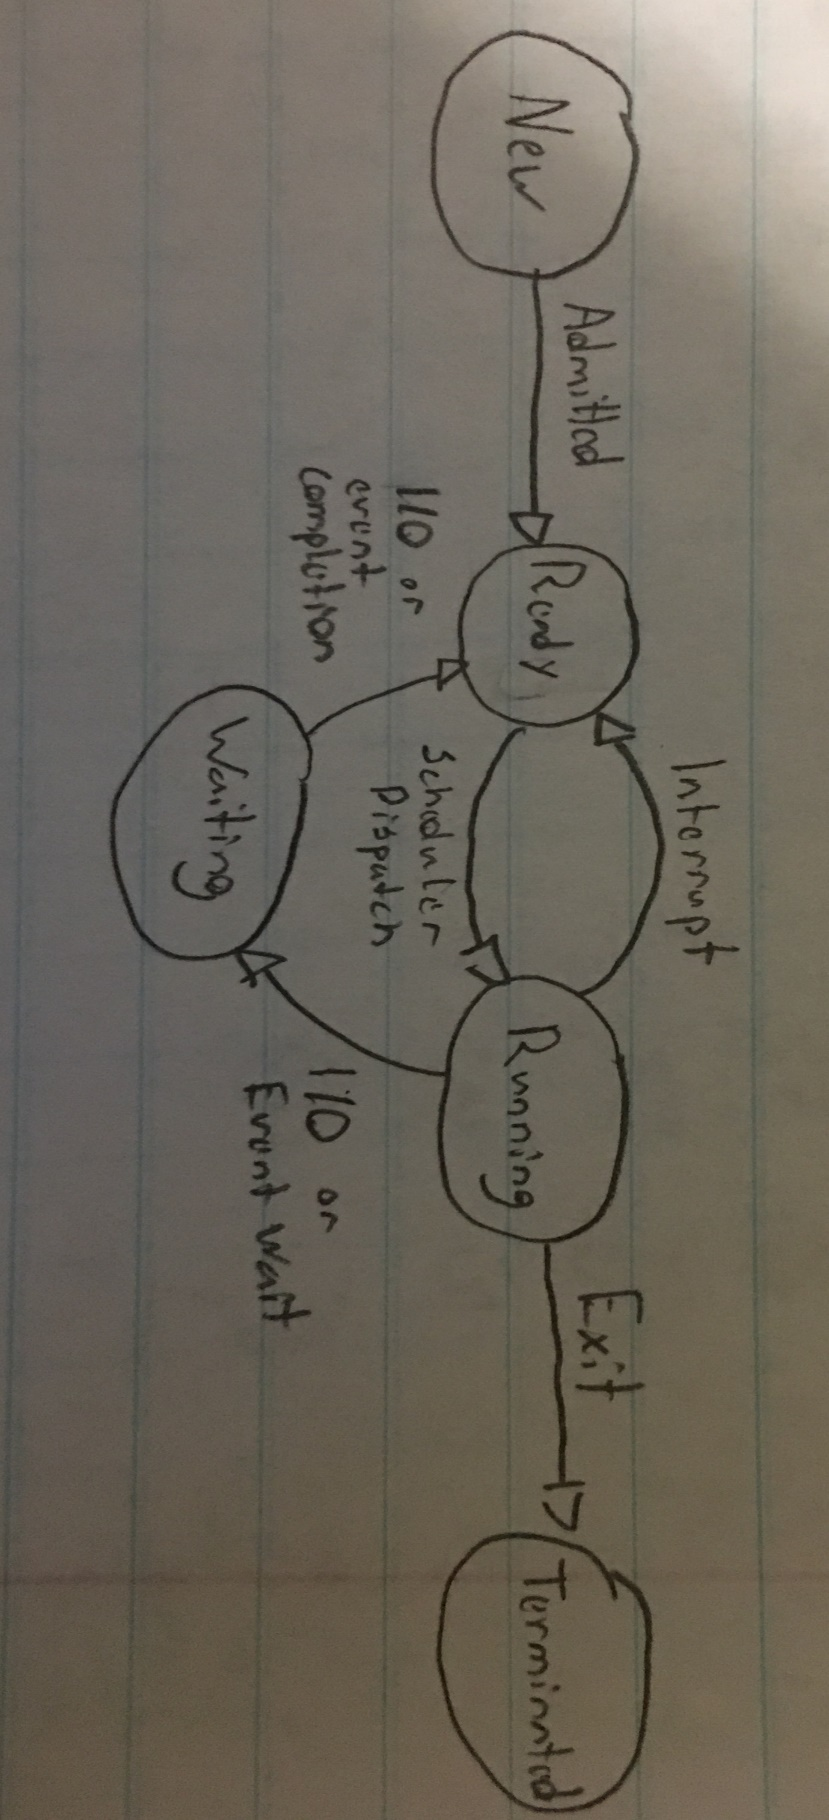 New
Admitted
Ready
Interrupt
Scheduler
Dispatch
Running
Exit
Terminated
I/O or
event
completion
Waiting
I/O or
Event Wait